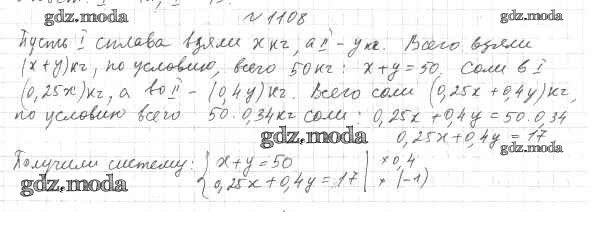 gdz.moda № 1108 gdz.moda
Пусть I сплава взяли x кг, а II - y кг. Всего взяли
(x+y) кг, по условию, всего 50 кг: x+y=50. Соли в I
(0,25x) кг, а во II - (0,4y) кг. Всего соли (0,25x+0,4y) кг,
по условию всего 50·0,34 кг соли: 0,25x+0,4y=50·0,34
gdz.moda 0,25x+0,4y=17
gdz.moda
Получили систему: { x+y=50 | × 0,4
gdz.moda { 0,25x+0,4y=17 | × (-1)